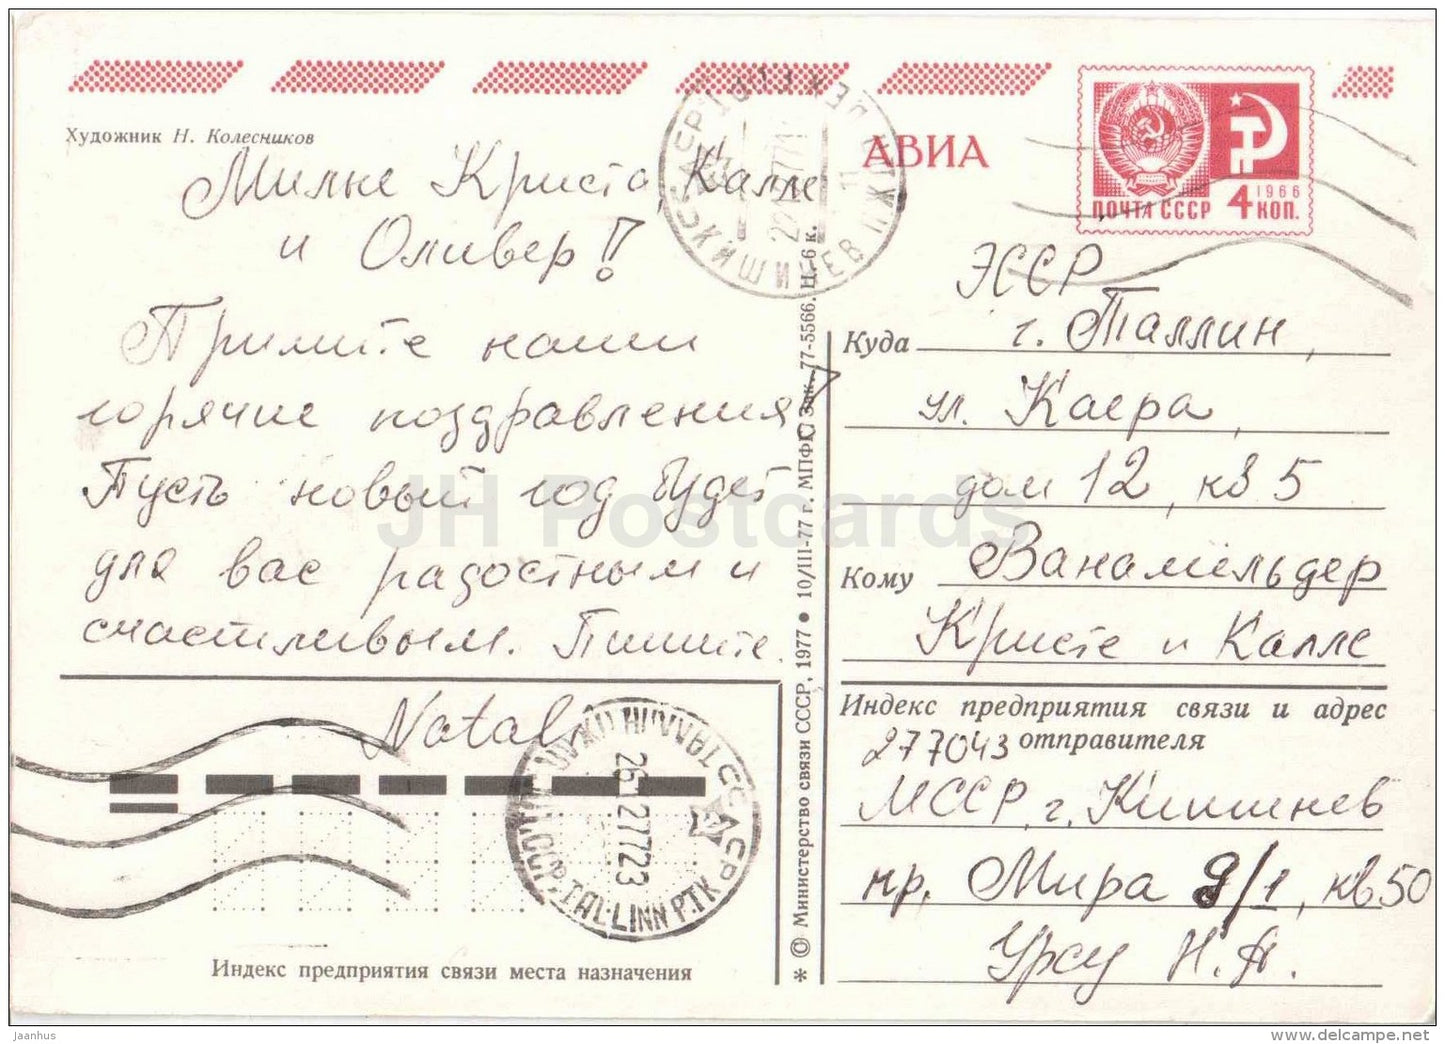 Художник Н. Колесников
АВИА
1966
ПОЧТА СССР 4 КОП.
Милые Криста, Калле
и Оливер!
Примите наши
горячие поздравления
Пусть новый год будет
для вас радостным и
счастливым. Пишите.
Natali
ЭССР
Куда г. Таллин,
ул. Каера,
дом 12, кв 5
Кому Ванамельдер
Кристе и Калле
Индекс предприятия связи и адрес
277043 отправителя
МССР, г. Кишинев
пр. Мира 9/1, кв 50
Урсу Н. А.
Индекс предприятия связи места назначения
* © Министерство связи СССР, 1977 ● 10/III-77 г. МПФГ Зак. 77-5566. Ц. 6 к.
КИШИНЕВ
TALLINN PTK
26 12 77 23
JH Postcards
jaanhus
www.delcampe.net